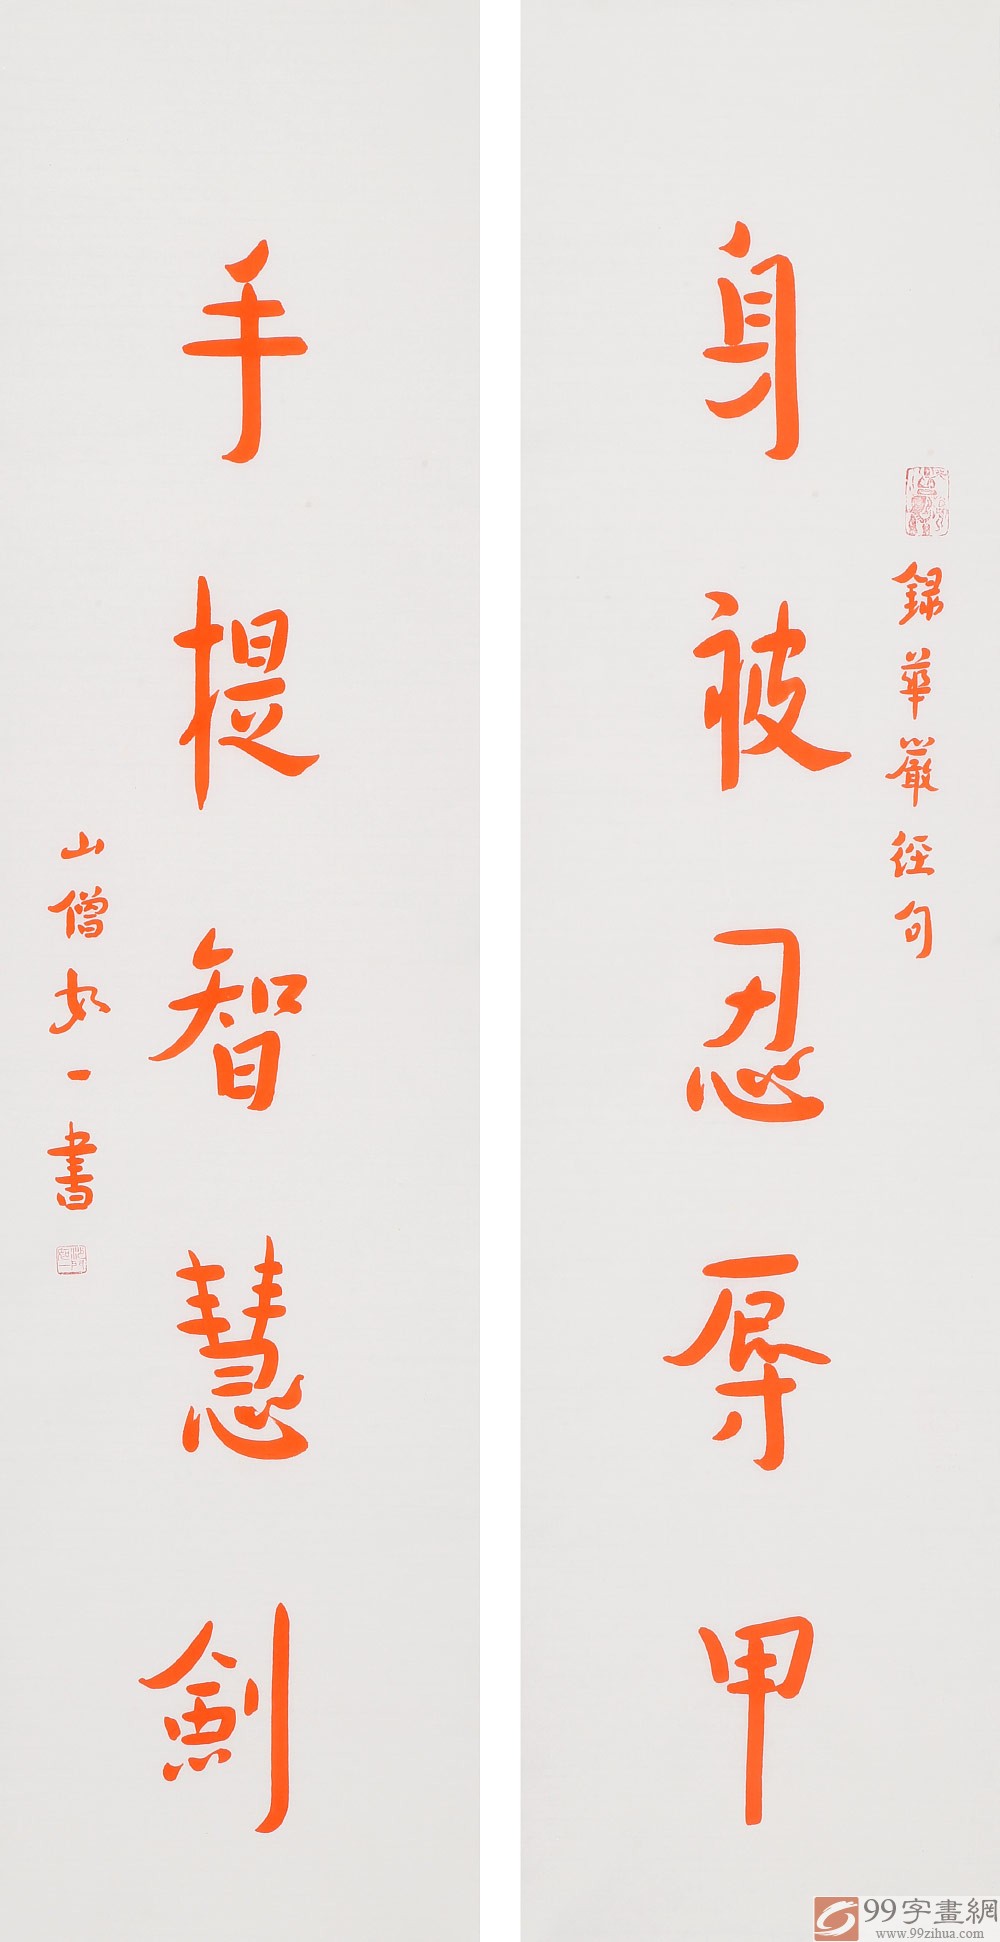 身被忍辱甲
錄華嚴經句
手提智慧劍
山僧如一書
99字畫網
www.99zihua.com